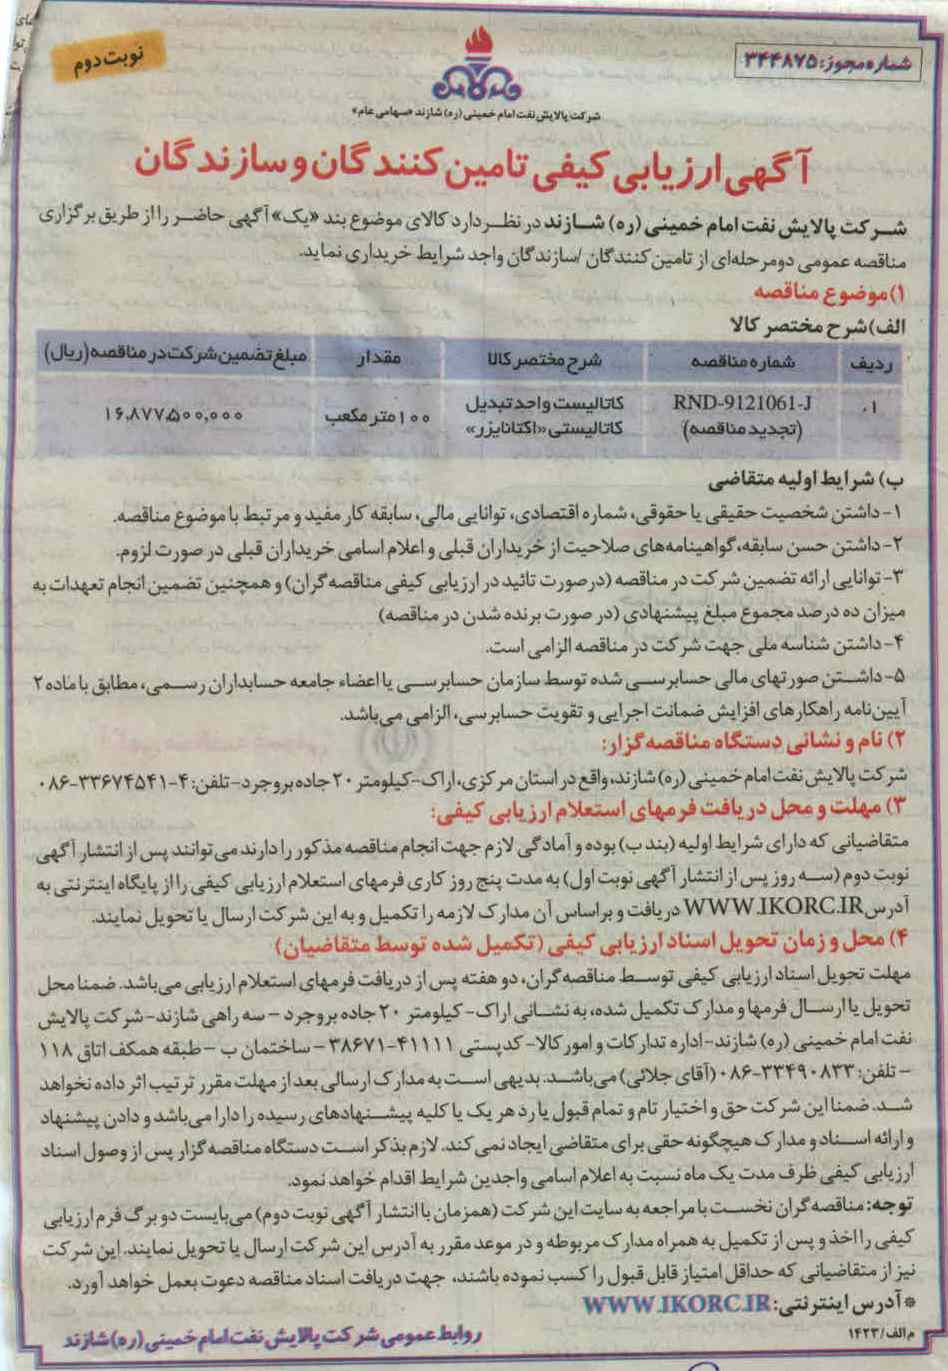 نوبت دوم
شماره مجوز: ۳۴۴۸۷۵
شرکت پالایش نفت امام خمینی (ره) شازند «سهامی عام»
آگهی ارزیابی کیفی تامین کنندگان و سازندگان
شرکت پالایش نفت امام خمینی (ره) شازند در نظر دارد کالای موضوع بند «یک» آگهی حاضر را از طریق برگزاری
مناقصه عمومی دو مرحله‌ای از تامین کنندگان /سازندگان واجد شرایط خریداری نماید.
۱) موضوع مناقصه
الف) شرح مختصر کالا
ردیف شماره مناقصه شرح مختصر کالا مقدار مبلغ تضمین شرکت در مناقصه (ریال)
۰۱ RND-9121061-J کاتالیست واحد تبدیل ۱۰۰ متر مکعب ۱۶,۸۷۷,۵۰۰,۰۰۰
(تجدید مناقصه) کاتالیستی «اکتانایزر»
ب) شرایط اولیه متقاضی
۱- داشتن شخصیت حقیقی یا حقوقی، شماره اقتصادی، توانایی مالی، سابقه کار مفید و مرتبط با موضوع مناقصه.
۲- داشتن حسن سابقه، گواهینامه‌های صلاحیت از خریداران قبلی و اعلام اسامی خریداران قبلی در صورت لزوم.
۳- توانایی ارائه تضمین شرکت در مناقصه (در صورت تائید در ارزیابی کیفی مناقصه گران) و همچنین تضمین انجام تعهدات به
میزان ده درصد مجموع مبلغ پیشنهادی (در صورت برنده شدن در مناقصه)
۴- داشتن شناسه ملی جهت شرکت در مناقصه الزامی است.
۵- داشتن صورتهای مالی حسابرسی شده توسط سازمان حسابرسی یا اعضاء جامعه حسابداران رسمی، مطابق با ماده ۲
آیین‌نامه راهکارهای افزایش ضمانت اجرایی و تقویت حسابرسی، الزامی می‌باشد.
۲) نام و نشانی دستگاه مناقصه گزار:
شرکت پالایش نفت امام خمینی (ره) شازند، واقع در استان مرکزی، اراک- کیلومتر ۲۰ جاده بروجرد- تلفن: ۴-۳۳۶۷۴۵۴۱-۰۸۶
۳) مهلت و محل دریافت فرمهای استعلام ارزیابی کیفی:
متقاضیانی که دارای شرایط اولیه (بند ب) بوده و آمادگی لازم جهت انجام مناقصه مذکور را دارند می‌توانند پس از انتشار آگهی
نوبت دوم (سه روز پس از انتشار آگهی نوبت اول) به مدت پنج روز کاری فرمهای استعلام ارزیابی کیفی را از پایگاه اینترنتی به
آدرس WWW.IKORC.IR دریافت و براساس آن مدارک لازمه را تکمیل و به این شرکت ارسال یا تحویل نمایند.
۴) محل و زمان تحویل اسناد ارزیابی کیفی (تکمیل شده توسط متقاضیان)
مهلت تحویل اسناد ارزیابی کیفی توسط مناقصه گران، دو هفته پس از دریافت فرمهای استعلام ارزیابی می‌باشد. ضمنا محل
تحویل یا ارسال فرمها و مدارک تکمیل شده، به نشانی اراک- کیلومتر ۲۰ جاده بروجرد - سه راهی شازند- شرکت پالایش
نفت امام خمینی (ره) شازند- اداره تدارکات و امور کالا- کدپستی ۴۱۱۱۱-۳۸۶۷۱ - ساختمان ب - طبقه همکف اتاق ۱۱۸
- تلفن: ۳۳۴۹۰۸۳۳-۰۸۶ (آقای جلائی) می‌باشد. بدیهی است به مدارک ارسالی بعد از مهلت مقرر ترتیب اثر داده نخواهد
شد. ضمنا این شرکت حق و اختیار تام و تمام قبول یا رد هر یک یا کلیه پیشنهادهای رسیده را دارا می‌باشد و دادن پیشنهاد
و ارائه اسناد و مدارک هیچگونه حقی برای متقاضی ایجاد نمی کند. لازم بذکر است دستگاه مناقصه گزار پس از وصول اسناد
ارزیابی کیفی ظرف مدت یک ماه نسبت به اعلام اسامی واجدین شرایط اقدام خواهد نمود.
توجه: مناقصه گران نخست با مراجعه به سایت این شرکت (همزمان با انتشار آگهی نوبت دوم) می‌بایست دو برگ فرم ارزیابی
کیفی را اخذ و پس از تکمیل به همراه مدارک مربوطه و در موعد مقرر به آدرس این شرکت ارسال یا تحویل نمایند. این شرکت
نیز از متقاضیانی که حداقل امتیاز قابل قبول را کسب نموده باشند، جهت دریافت اسناد مناقصه دعوت بعمل خواهد آورد.
* آدرس اینترنتی: WWW.IKORC.IR
م الف/۱۴۲۳
روابط عمومی شرکت پالایش نفت امام خمینی (ره) شازند